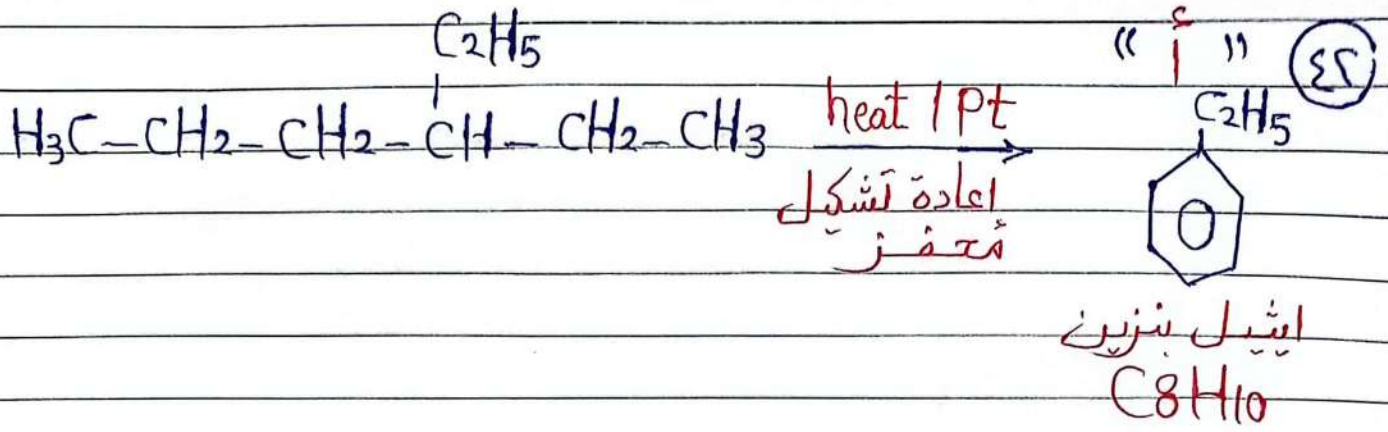 ٤٢ " أ "
C2H5
H3C-CH2-CH2-CH-CH2-CH3
heat / Pt
اعادة تشكيل
مُحفز
C2H5
ايثيل بنزين
C8H10